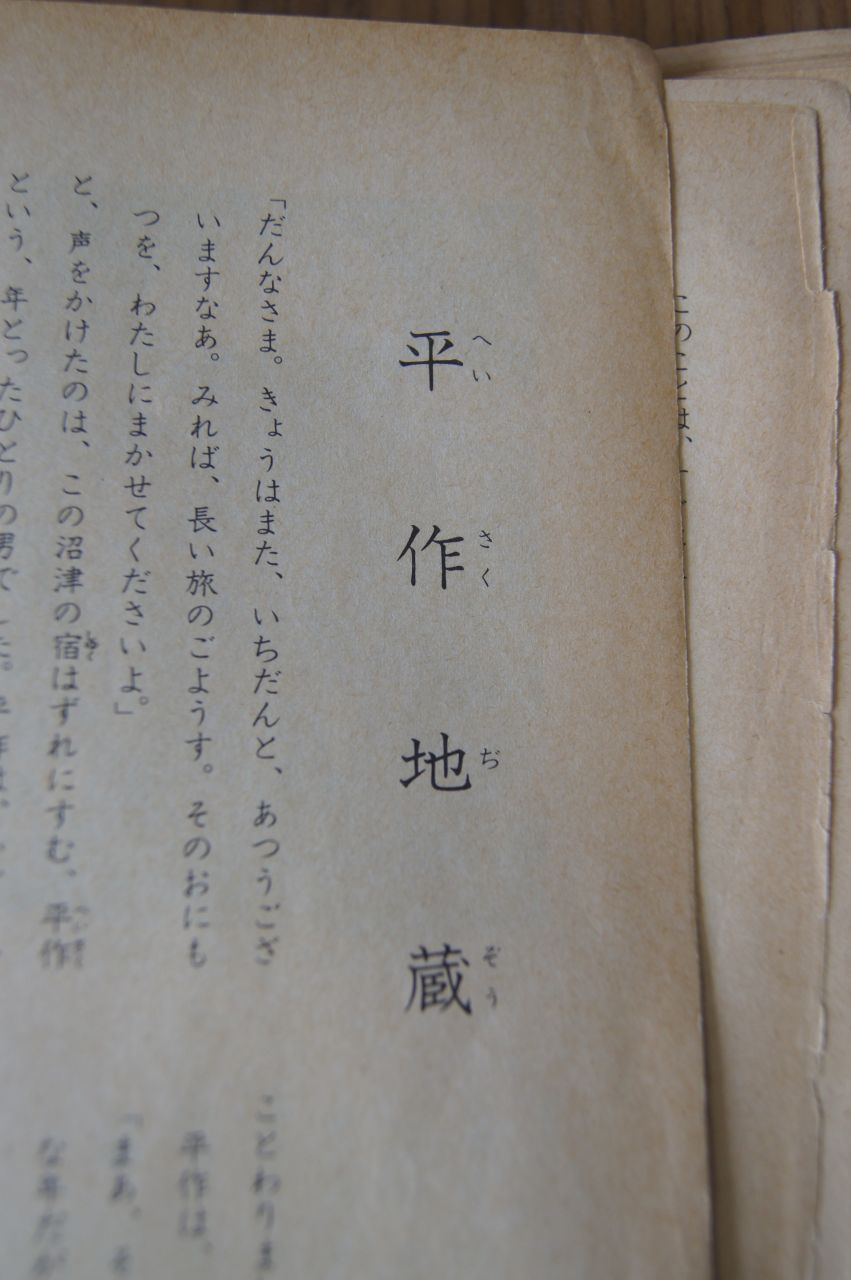 平作地蔵
へいさくぢぞう
「だんなさま。きょうはまた、いちだんと、あつうござ
いますなあ。みれば、長い旅のごようす。そのおにも
つを、わたしにまかせてくださいよ。」
と、声をかけたのは、この沼津の宿はずれにすむ、平作
という、年とったひとりの男でした。平作は、
ことわりま
平作は、
「まあ、そ
な年だが
このことは、